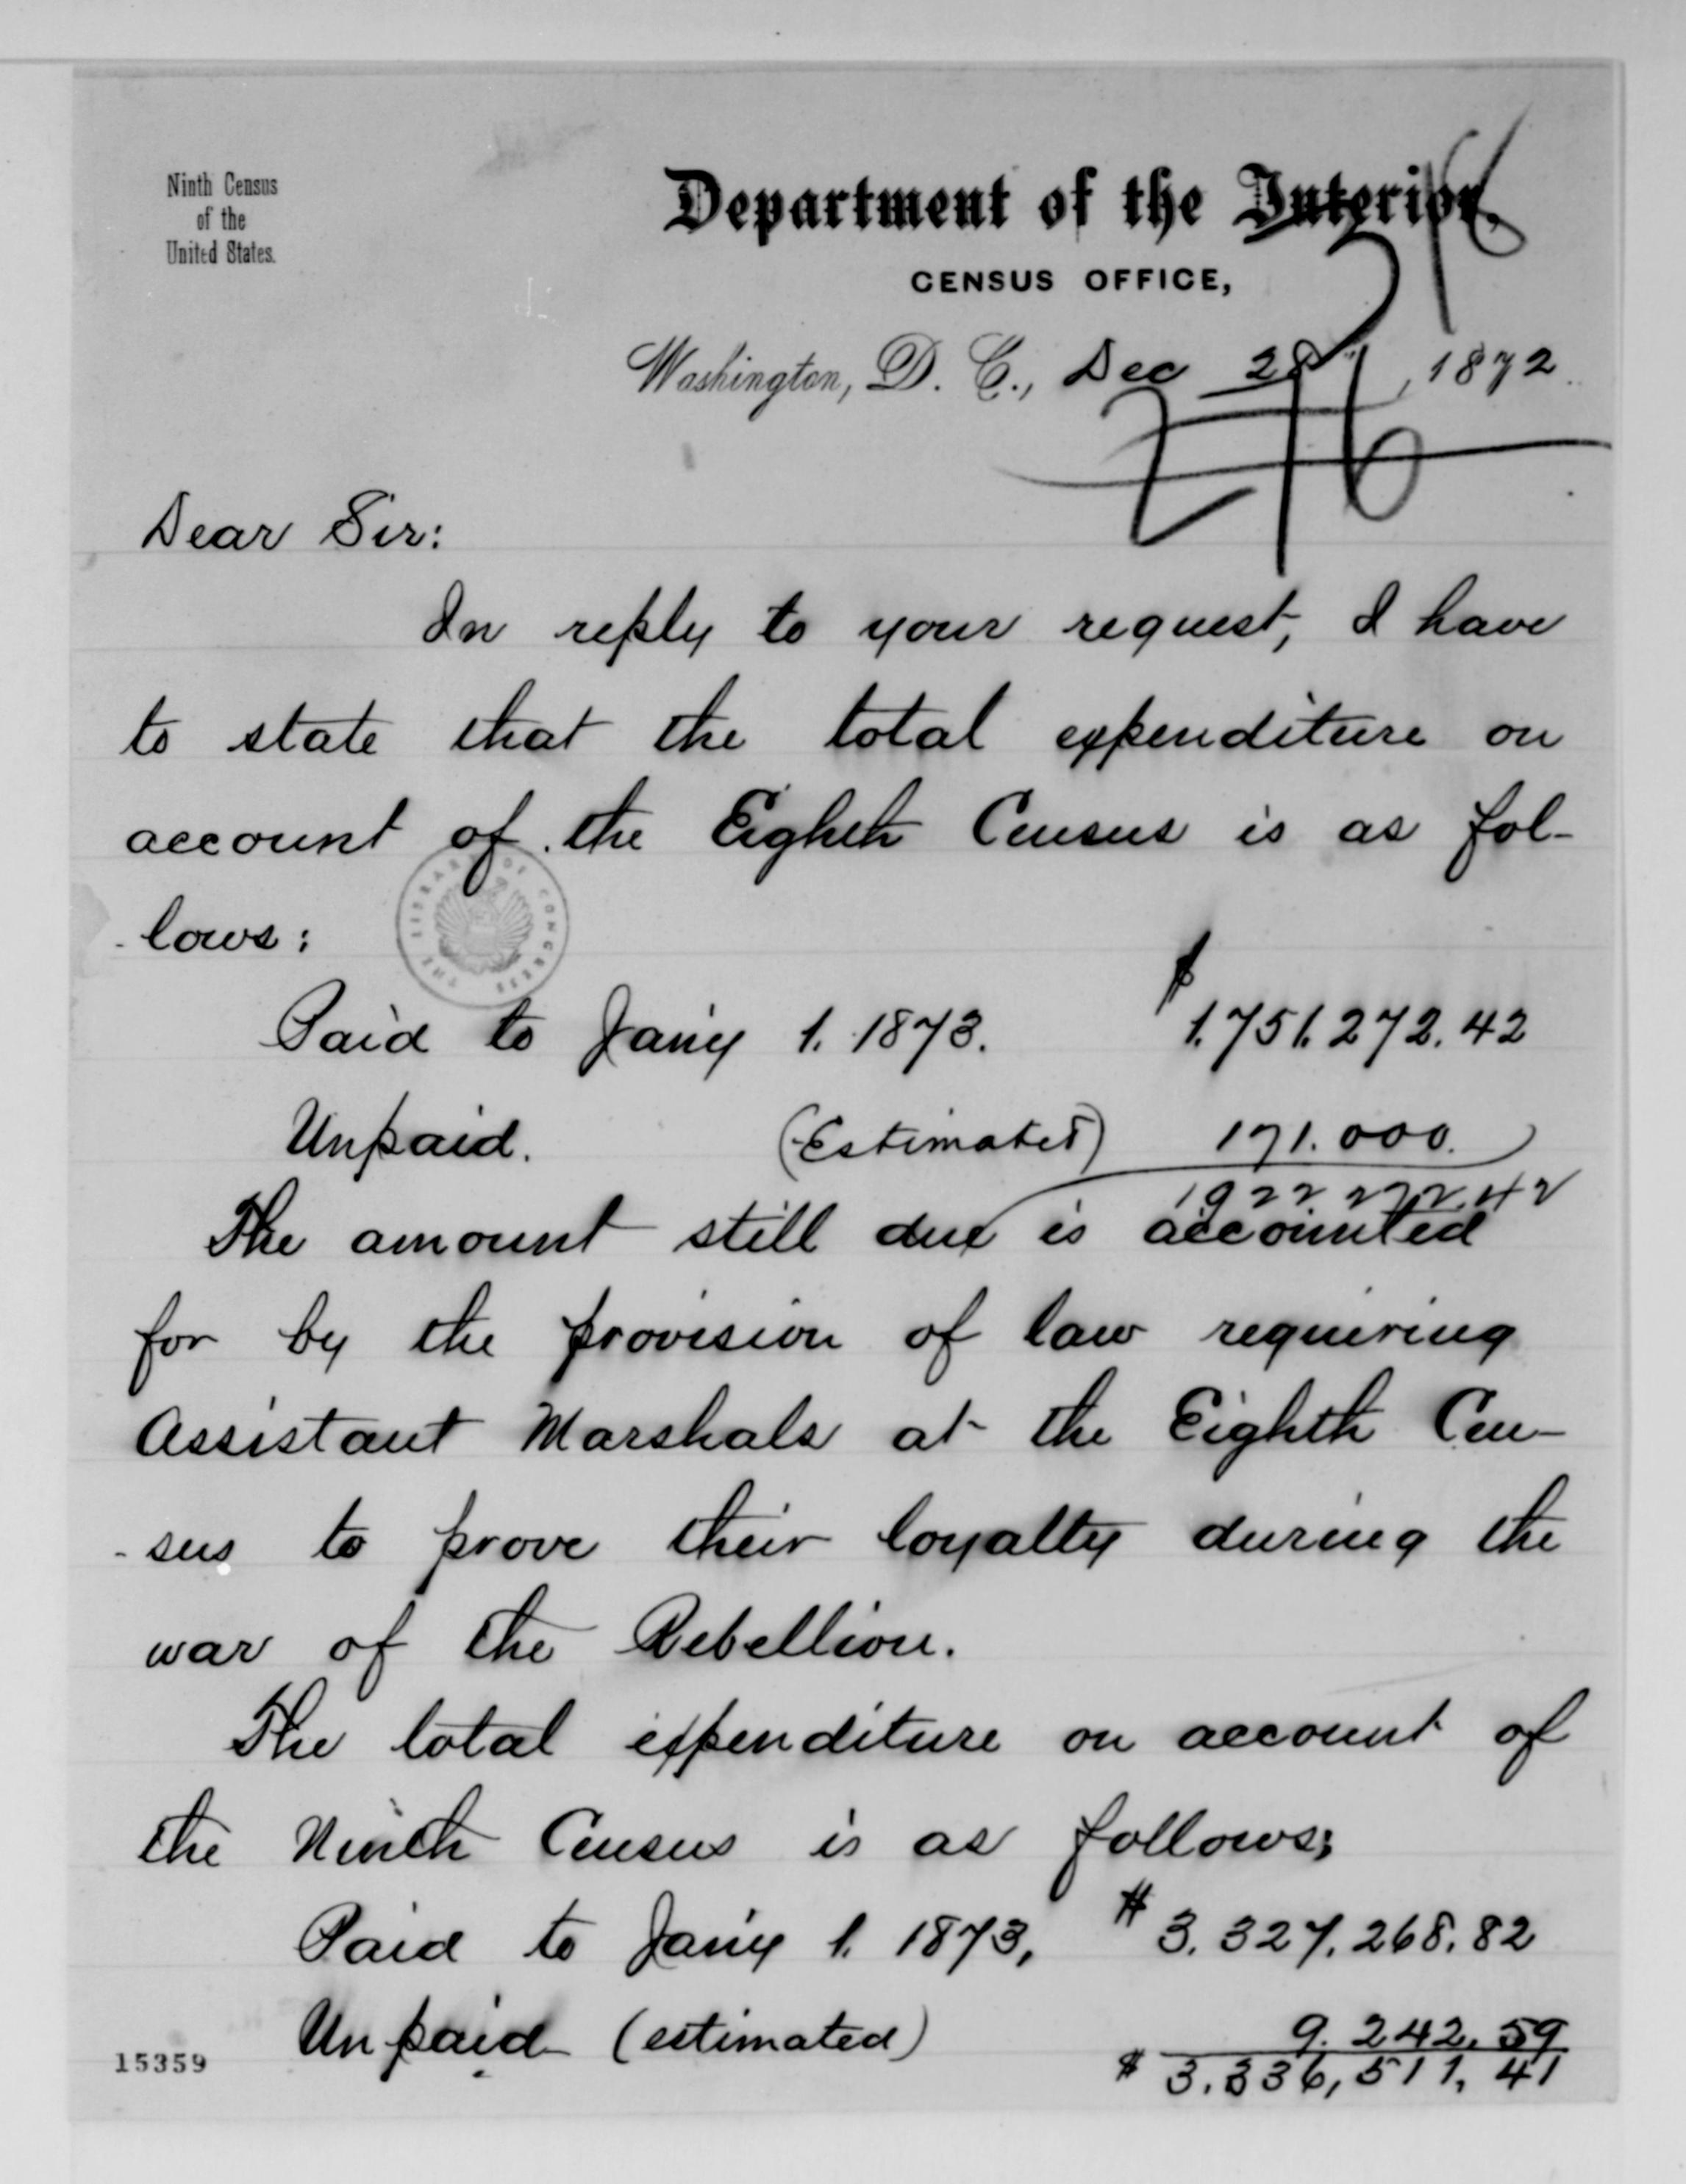 Ninth Census
of the
United States.
Department of the Interior,
CENSUS OFFICE,
Washington, D. C., Dec 28, 1872.
Dear Sir:
In reply to your request, I have
to state that the total expenditure on
account of the Eighth Census is as fol-
lows:
THE LIBRARY OF CONGRESS
Paid to Jany 1. 1873. $1.751.272.42
Unpaid. (Estimated) 171.000.
1922 272.42
The amount still due is accounted
for by the provision of law requiring
Assistant Marshals at the Eighth Cen-
-sus to prove their loyalty during the
war of the Rebellion.
The total expenditure on account of
the Ninth Census is as follows;
Paid to Jany 1. 1873, $3.327.268.82
Unpaid (estimated) 9.242.59
$3.336,511,41
15359